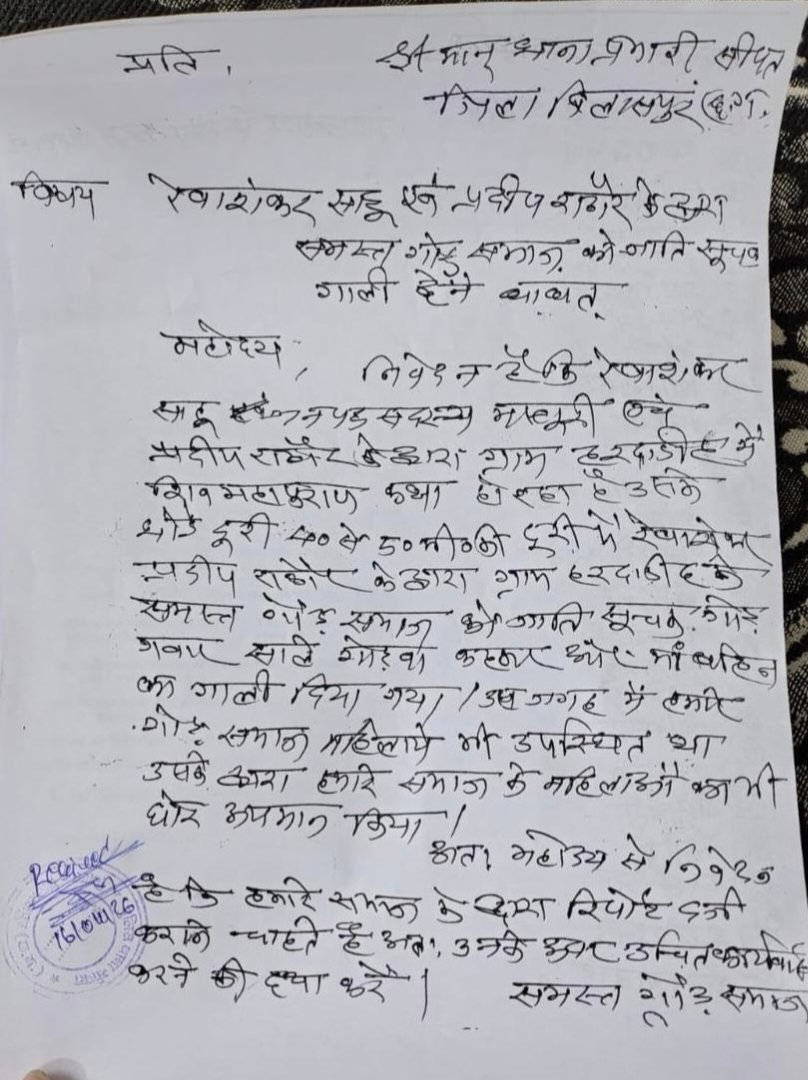 प्रति,
श्रीमान् थाना प्रभारी सीपत
जिला बिलासपुर (छ.ग.
विषय रेवाशंकर साहू एवं प्रदीप राठौर के द्वारा
समस्त गोंड़ समाज को जाति सूचक
गाली देने बाबत्
महोदय,
निवेदन है कि रेवाशंकर
साहू जनपद सदस्य एवं
प्रदीप राठौर के द्वारा ग्राम हरदाडीह में
शिव महापुराण कथा हो रहा है उसके
थोडे दूरी ४० से ५० मी० की दूरी में रेवाशंकर
प्रदीप राठौर के द्वारा ग्राम हरदाडीह के
समस्त गोंड़ समाज को जाति सूचक गोंड़
गवार साले गोड़वा कहकर और माँ बहिन
का गाली दिया गया। उस जगह में हमारे
गोंड़ समाज महिलाये भी उपस्थित था
उसके द्वारा हमारे समाज के महिलाओं का भी
घोर अपमान किया।
अतः महोदय से निवेदन
है कि हमारे समाज के द्वारा रिपोर्ट दर्ज
कराने चाहते है अतः उनके ऊपर उचित कार्यवाही
करने की दया करें।
समस्त गोंड़ समाज
Received
16/01/26